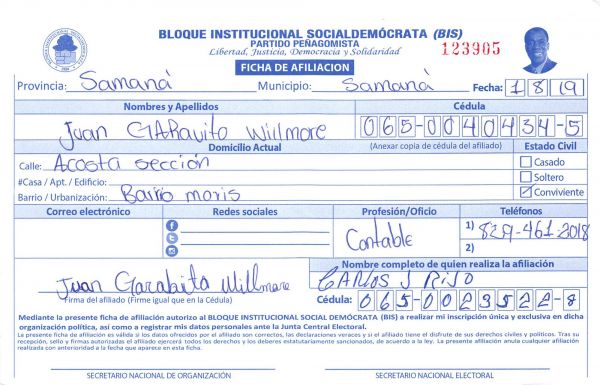 BLOQUE INSTITUCIONAL SOCIALDEMÓCRATA (BIS)
PARTIDO PEÑAGOMISTA
Libertad, Justicia, Democracia y Solidaridad
123905
FICHA DE AFILIACION
Provincia: Samaná Municipio: Samaná Fecha: 1/8/19
Nombres y Apellidos Cédula
Juan GARavito Willmore 065-0040434-5
Domicilio Actual (Anexar copia de cédula del afiliado) Estado Civil
Calle: Acosta sección Casado
#Casa / Apt. / Edificio: Soltero
Barrio / Urbanización: Barrio moris Conviviente
Correo electrónico Redes sociales Profesión/Oficio Teléfonos
Contable 1) 829-461-2018
2)
Juan Garabito Willmore Nombre completo de quien realiza la afiliación
CARLOS J RIJO
Firma del afiliado (Firme igual que en la Cédula) Cédula: 065-0023522-8
Mediante la presente ficha de afiliación autorizo al BLOQUE INSTITUCIONAL SOCIAL DEMÓCRATA (BIS) a realizar mi inscripción única y exclusiva en dicha
organización política, así como a registrar mis datos personales ante la Junta Central Electoral.
La presente ficha de afiliación es válida si los datos ofrecidos por el afiliado son correctos, las declaraciones veraces y si el afiliado tiene el disfrute de sus derechos civiles y políticos. Tras su
recepción, sello y firmas autorizadas el afiliado ejercerá todos los derechos y los deberes estatutariamente sancionados, de acuerdo a la ley. La presente afiliación anula cualquier afiliación
realizada con anterioridad a la fecha que aparece en esta ficha.
SECRETARIO NACIONAL DE ORGANIZACIÓN SECRETARIO NACIONAL ELECTORAL